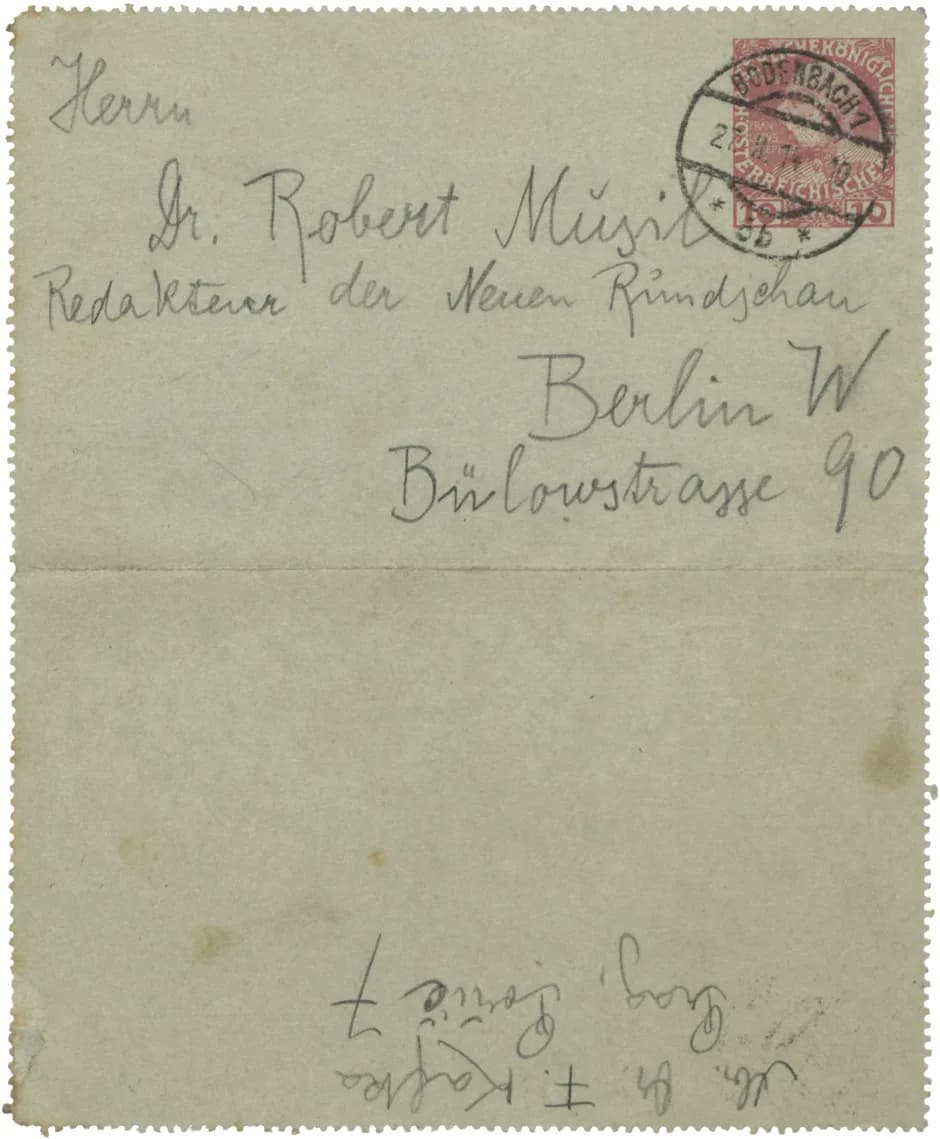 Herrn
Dr. Robert Musil
Redakteur der Neuen Rundschau
Berlin W
Bülowstrasse 90
BODENBACH 1
14 10
5b
KÖNIGLICHE
ÖSTERREICHISCHE
10 10
Dr. F. Kafka
Prag, Pořič 7